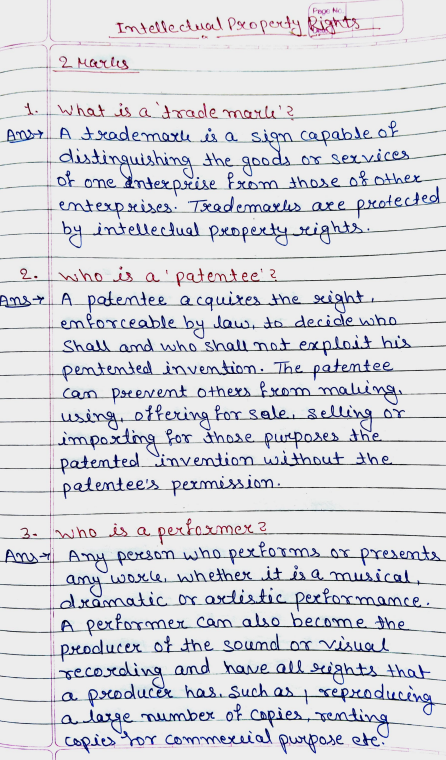 Page No.
Intellectual Property Rights
2 Marks
1. What is a 'trade mark'?
Ans→ A trademark is a sign capable of
distinguishing the goods or services
of one enterprise from those of other
enterprises. Trademarks are protected
by intellectual property rights.
2. Who is a 'patentee'?
Ans→ A patentee acquires the right,
enforceable by law, to decide who
shall and who shall not exploit his
pentented invention. The patentee
can prevent others from making,
using, offering for sale, selling or
importing for those purposes the
patented invention without the
patentee's permission.
3. Who is a performer?
Ans→ Any person who performs or presents
any work, whether it is a musical,
dramatic or artistic performance.
A performer can also become the
producer of the sound or visual
recording and have all rights that
a producer has, such as, reproducing
a large number of copies, renting
copies for commercial purpose etc.